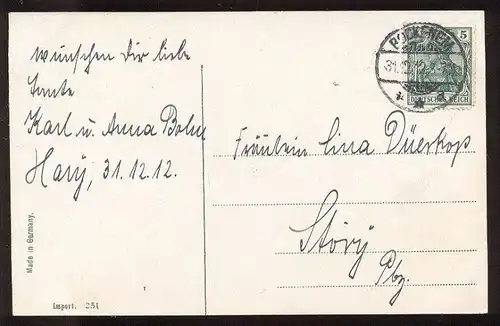 wünschen Dir liebe
Tante
Karl u. Anna Bohm
Hary, 31.12.12.
Made in Germany.
Import. 251
BOCKENEM
31.12.12
5
DEUTSCHES REICH
Fräulein Lina Düerkop
Störy
Pbz.